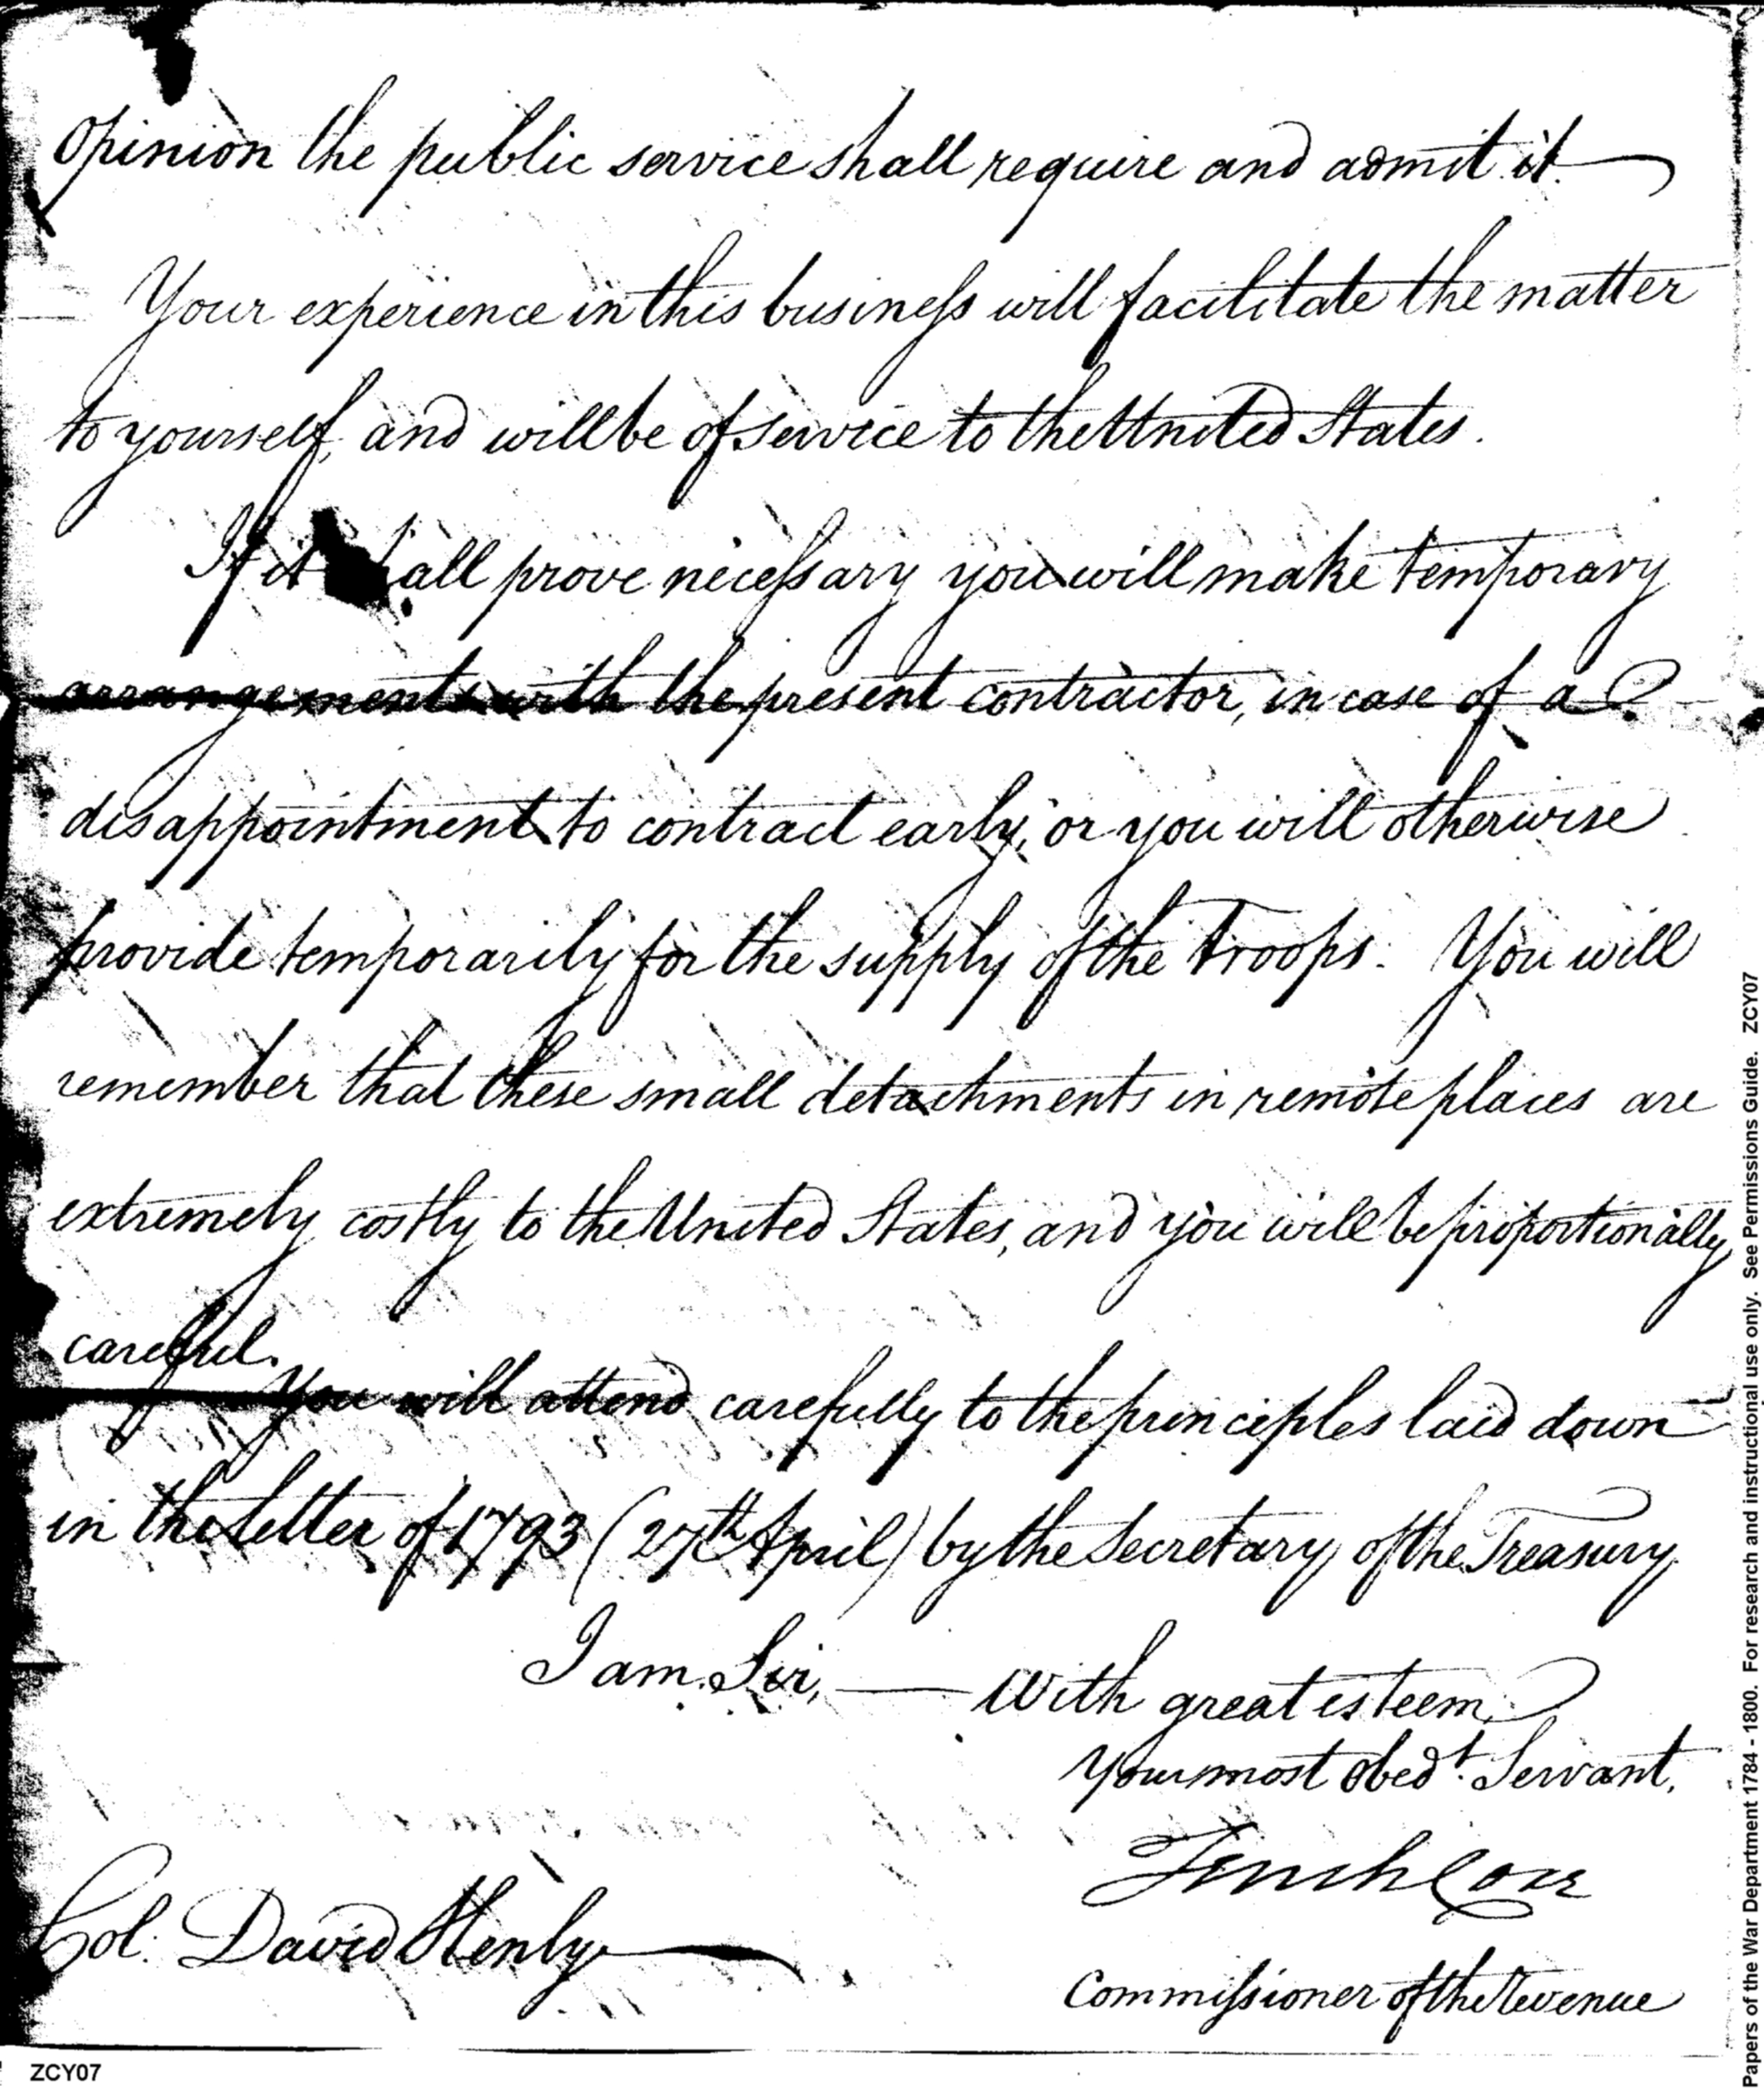 Opinion the public service shall require and admit it.
Your experience in this business will facilitate the matter
to yourself, and will be of service to the United States.
If it shall prove necessary you will make temporary
arrangements with the present contractor, in case of a
disappointment to contract early, or you will otherwise
provide temporarily for the supply of the troops. You will
remember that these small detachments in remote places are
extremely costly to the United States, and you will be proportionally
careful.
You will attend carefully to the principles laid down
in the letter of 1793 (27th April) by the Secretary of the Treasury
I am Sir, — With great esteem,
Your most obedt. Servant,
Tench Coxe
Col. David Henly
Commissioner of the Revenue
ZCY07
Papers of the War Department 1784 - 1800. For research and instructional use only. See Permissions Guide. ZCY07